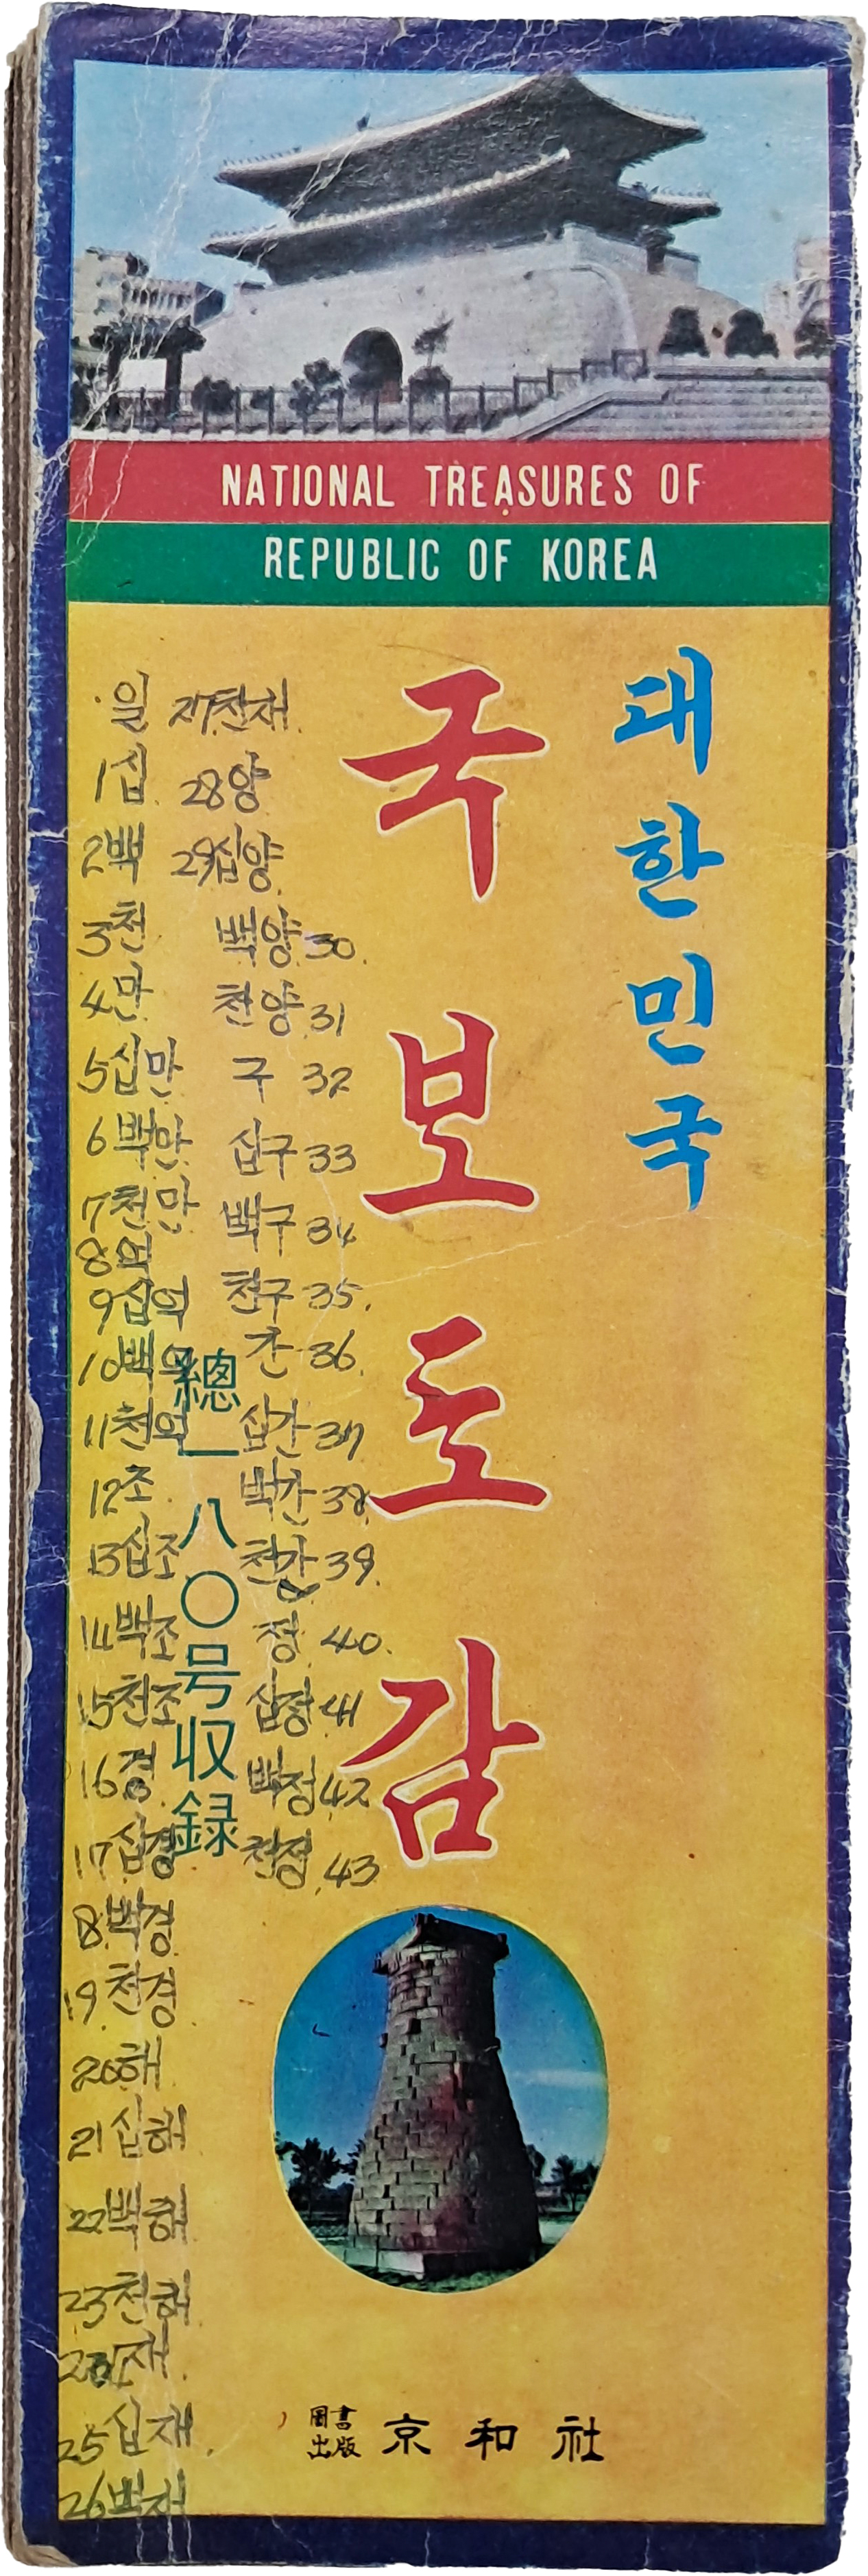 NATIONAL TREASURES OF
REPUBLIC OF KOREA
대한민국
국보도감
總一八〇号収録
일
1십
2백
3천
4만
5십만
6백만
7천만
8억
9십억
10백억
11천억
12조
13십조
14백조
15천조
16경
17십경
18백경
19천경
20해
21십해
22백해
23천해
24재
25십재
26백재
27천재
28양
29십양
백양30
천양31
구 32
십구33
백구34
천구35
간36
십간37
백간38
천간39
정 40
십정41
백정42
천정43
圖書
出版
京和社